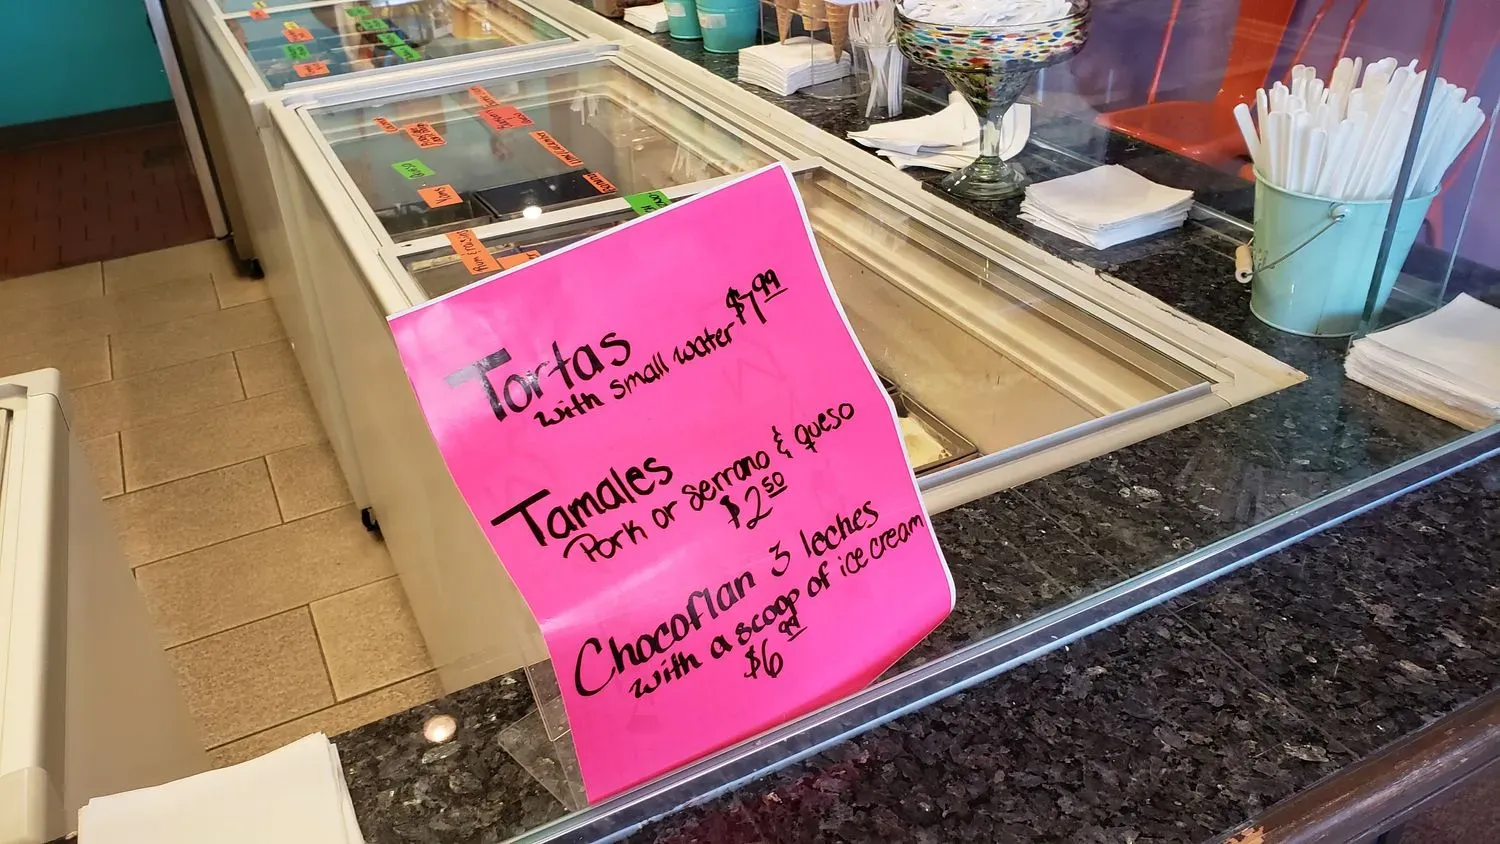 Tortas
with small water $7.99
Tamales
Pork or serrano & queso
$2.50
Chocoflan 3 leches
with a scoop of ice cream
$6.99